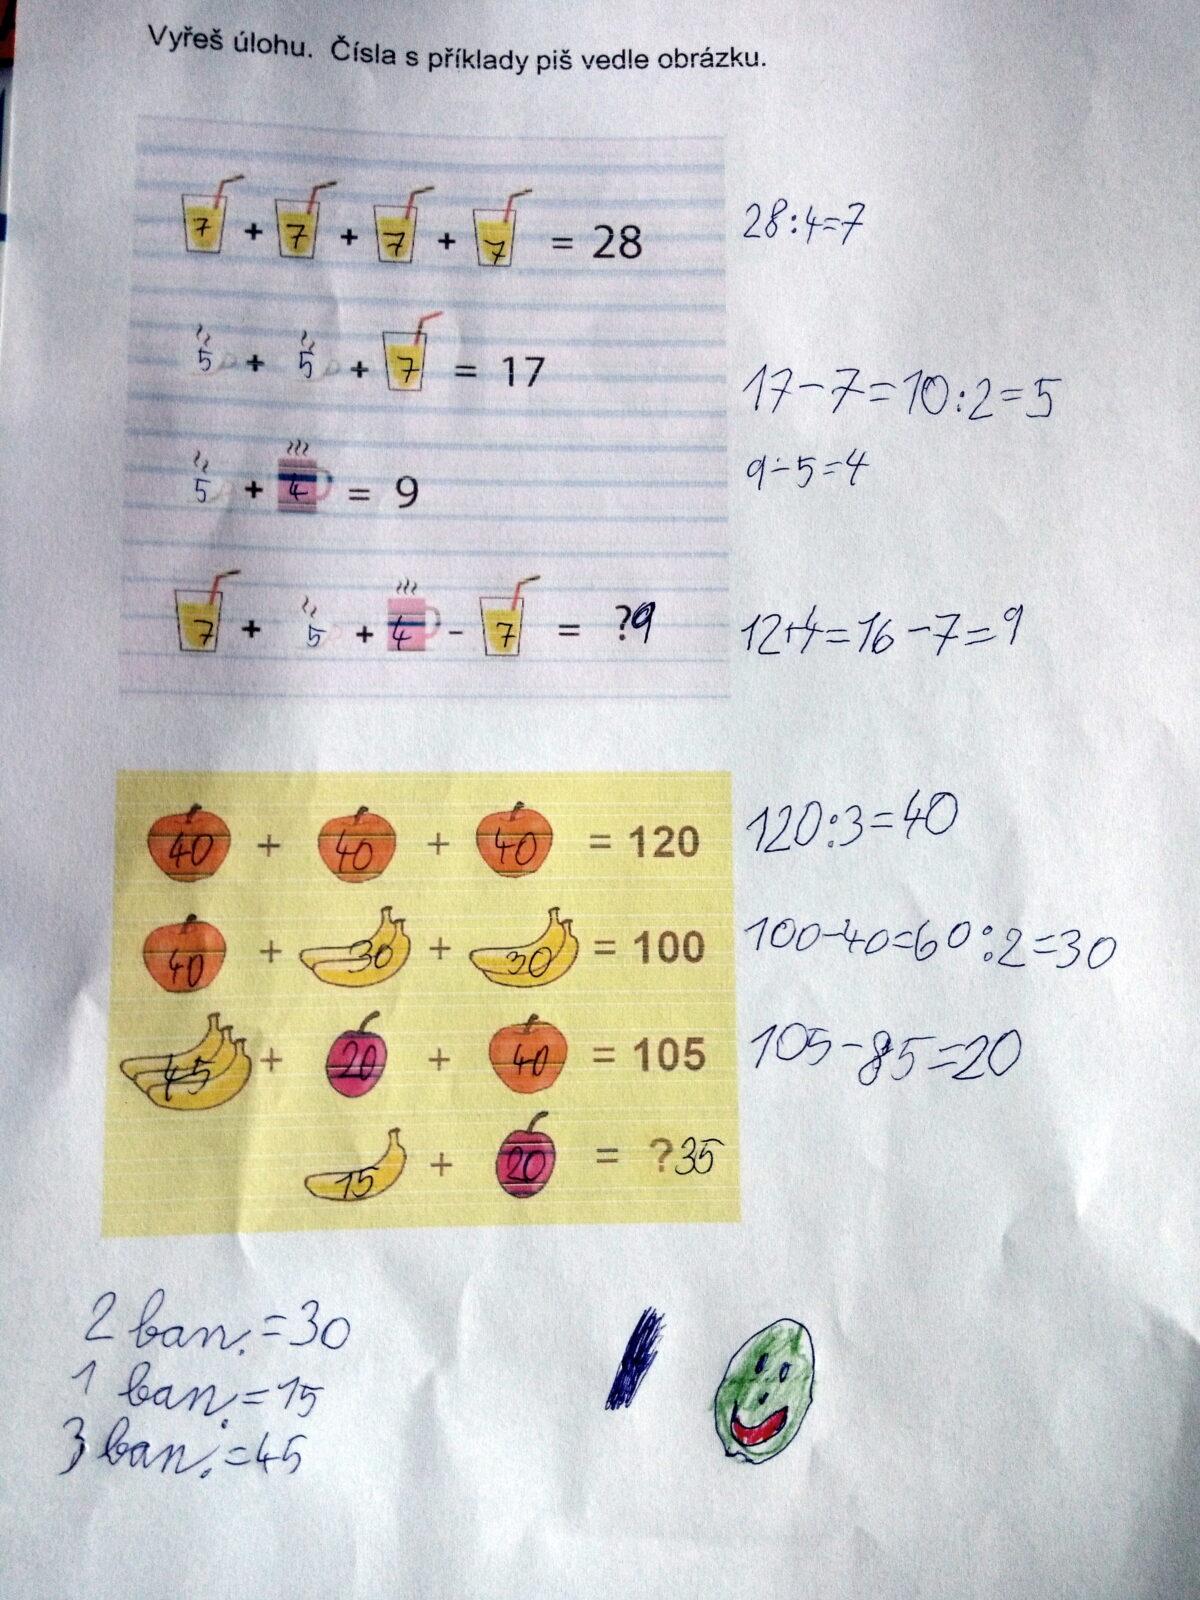 Vyřeš úlohu. Čísla s příklady piš vedle obrázku.
7 + 7 + 7 + 7 = 28 28:4=7
5 + 5 + 7 = 17 17-7=10:2=5
5 + 4 = 9 9-5=4
7 + 5 + 4 - 7 = ?9 12+4=16-7=9
40 + 40 + 40 = 120 120:3=40
40 + 30 + 30 = 100 100-40=60:2=30
45 + 20 + 40 = 105 105-85=20
15 + 20 = ?35
2 ban. =30
1 ban. =15
3 ban. =45